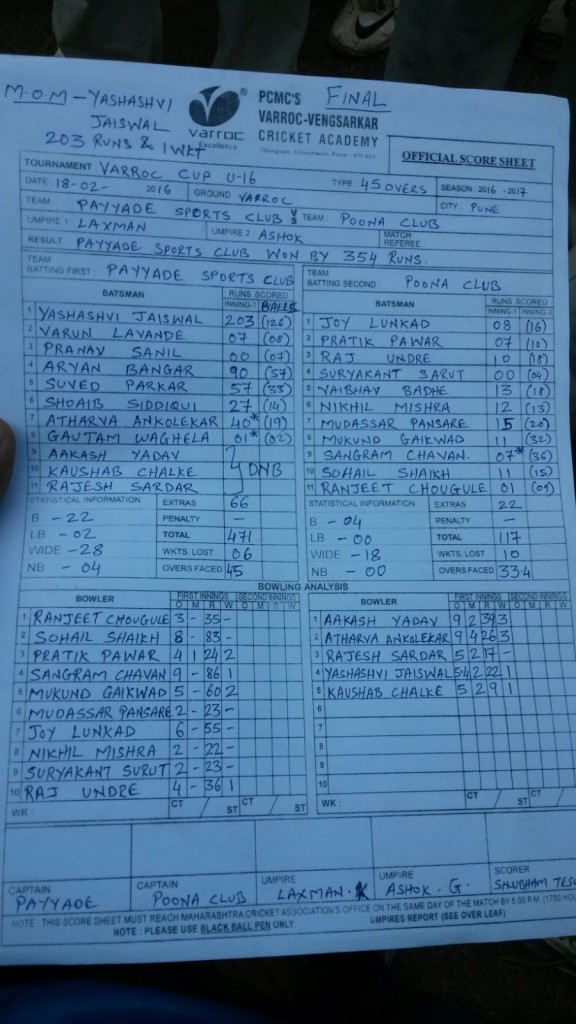 M.O.M - YASHASHVI JAISWAL
203 RUNS & 1 WKT
varroc
Excellence
PCMC'S
VARROC-VENGSARKAR
CRICKET ACADEMY
FINAL
OFFICIAL SCORE SHEET
TOURNAMENT: VARROC CUP U-16
DATE 18-02- 2016 GROUND VARROC TYPE 45 OVERS SEASON 2016 -2017
TEAM PAYYADE SPORTS CLUB VS TEAM POONA CLUB CITY PUNE
UMPIRE 1 LAXMAN UMPIRE 2 ASHOK MATCH REFEREE
RESULT PAYYADE SPORTS CLUB WON BY 354 RUNS.
TEAM BATTING FIRST PAYYADE SPORTS CLUB
BATSMAN RUNS SCORED INNING-1 BALLS
1 YASHASHVI JAISWAL 203 (126)
2 VARUN LAVANDE 07 (08)
3 PRANAV SANIL 00 (07)
4 ARYAN BANGAR 90 (57)
5 SUVED PARKAR 57 (33)
6 SHOAIB SIDDIQUI 27 (14)
7 ATHARVA ANKOLEKAR 40* (19)
8 GAUTAM WAGHELA 01* (02)
9 AAKASH YADAV
10 KAUSHAB CHALKE DNB
11 RAJESH SARDAR
STATISTICAL INFORMATION EXTRAS 66
B - 22 PENALTY -
LB - 02 TOTAL 471
WIDE - 28 WKTS. LOST 06
NB - 04 OVERS FACED 45
TEAM BATTING SECOND: POONA CLUB
BATSMAN RUNS SCORED INNING-1 INNING-2
1 JOY LUNKAD 08 (16)
2 PRATIK PAWAR 07 (10)
3 RAJ UNDRE 10 (18)
4 SURYAKANT SARUT 00 (04)
5 VAIBHAV BADHE 13 (18)
6 NIKHIL MISHRA 12 (13)
7 MUDASSAR PANSARE 15 (20)
8 MUKUND GAIKWAD 11 (32)
9 SANGRAM CHAVAN. 07* (36)
10 SOHAIL SHAIKH 11 (15)
11 RANJEET CHOUGULE 01 (09)
STATISTICAL INFORMATION EXTRAS 22
B - 04 PENALTY -
LB - 00 TOTAL 117
WIDE - 18 WKTS. LOST 10
NB - 00 OVERS FACED 33.4
BOWLING ANALYSIS
BOWLER FIRST INNINGS SECOND INNINGS
O M R W O M R W
1 RANJEET CHOUGULE 3 - 35 -
2 SOHAIL SHAIKH 8 - 83 -
3 PRATIK PAWAR 4 1 24 2
4 SANGRAM CHAVAN 9 - 86 1
5 MUKUND GAIKWAD 5 - 60 2
6 MUDASSAR PANSARE 2 - 23 -
7 JOY LUNKAD 6 - 55 -
8 NIKHIL MISHRA 2 - 22 -
9 SURYAKANT SURUT 2 - 23 -
10 RAJ UNDRE 4 - 36 1
WK : CT / ST CT / ST
BOWLER FIRST INNINGS SECOND INNINGS
O M R W O M R W
1 AAKASH YADAV 9 2 39 3
2 ATHARVA ANKOLEKAR 9 4 26 3
3 RAJESH SARDAR 5 2 17 -
4 YASHASHVI JAISWAL 5.4 2 22 1
5 KAUSHAB CHALKE 5 2 9 1
6
7
8
9
10
WK : CT / ST CT / ST
CAPTAIN PAYYADE
CAPTAIN POONA CLUB
UMPIRE LAXMAN.K
UMPIRE ASHOK. G.
SCORER SHUBHAM
NOTE : THIS SCORE SHEET MUST REACH MAHARASHTRA CRICKET ASSOCIATION'S OFFICE ON THE SAME DAY OF THE MATCH BY 5.00 P.M. (1700
NOTE : PLEASE USE BLACK BALL PEN ONLY. UMPIRES REPORT (SEE OVER LEAF)